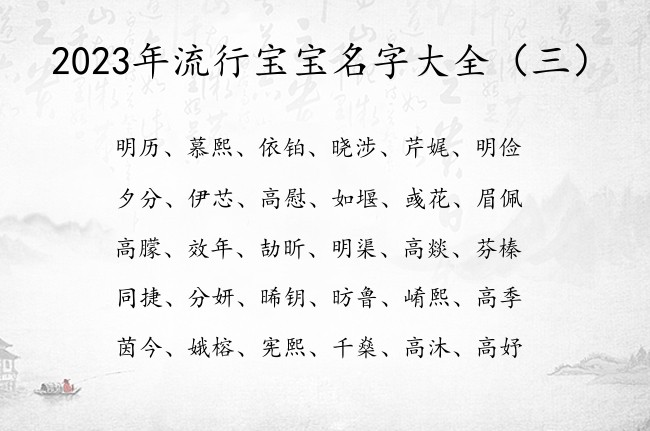 2023年流行宝宝名字大全（三）
明历、慕熙、依铂、晓涉、芹娓、明俭
夕分、伊芯、高慰、如堰、彧花、眉佩
高朦、效年、劼昕、明渠、高燚、芬榛
同捷、分妍、晞钥、昉鲁、崤熙、高季
茵今、娥榕、宪熙、千燊、高沐、高妤